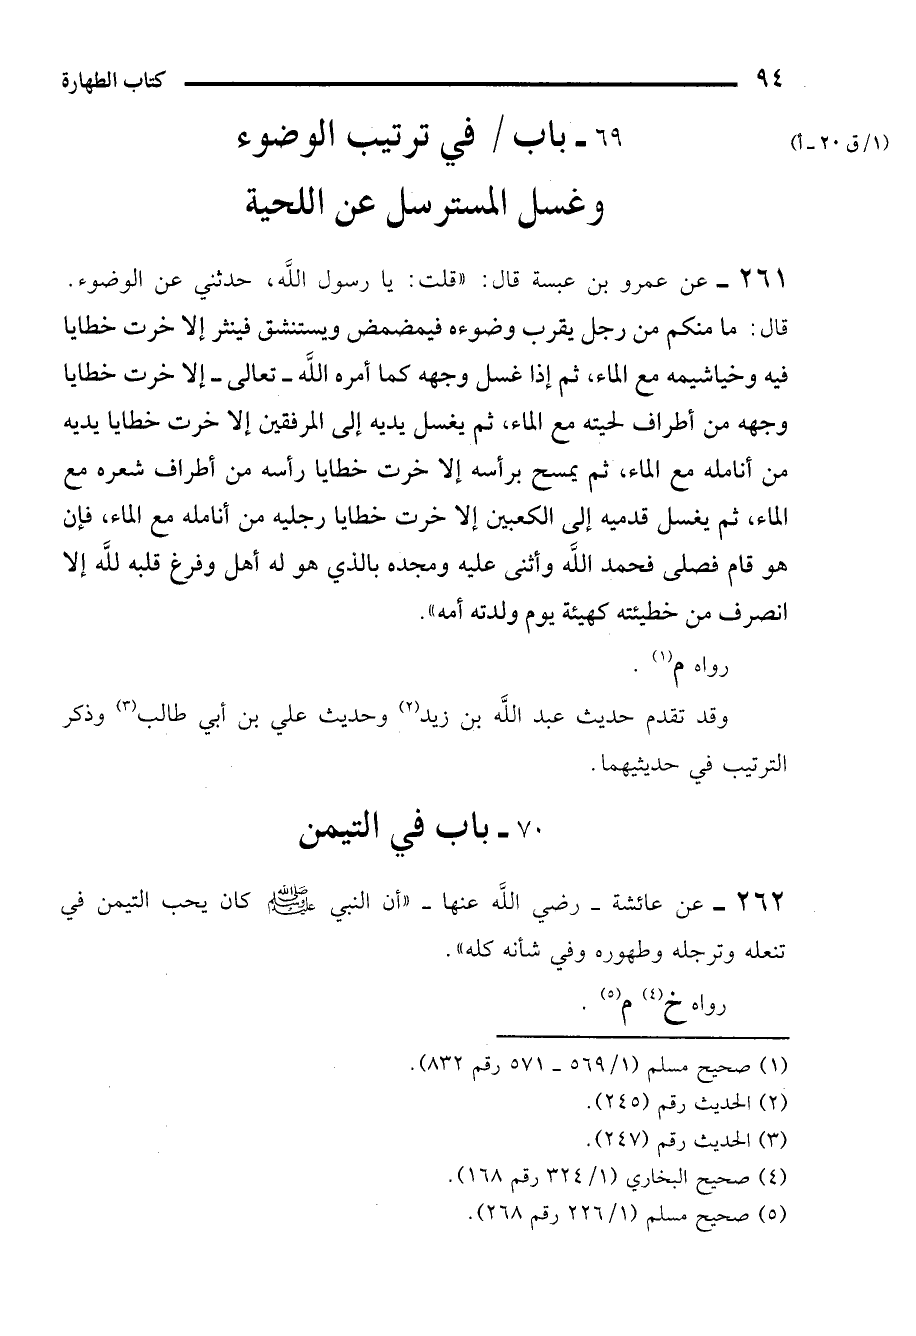 ٩٤ كتاب الطهارة
٦٩ ـ باب / في ترتيب الوضوء (١/ ق ٢٠ ـ أ)
وغسل المسترسل عن اللحية
٢٦١ ـ عن عمرو بن عبسة قال: «قلت: يا رسول اللَّه، حدثني عن الوضوء.
قال: ما منكم من رجل يقرب وضوءه فيمضمض ويستنشق فينثر إلا خرت خطايا
فيه وخياشيمه مع الماء، ثم إذا غسل وجهه كما أمره اللَّه ـ تعالى ـ إلا خرت خطايا
وجهه من أطراف لحيته مع الماء، ثم يغسل يديه إلى المرفقين إلا خرت خطايا يديه
من أنامله مع الماء، ثم يمسح برأسه إلا خرت خطايا رأسه من أطراف شعره مع
الماء، ثم يغسل قدميه إلى الكعبين إلا خرت خطايا رجليه من أنامله مع الماء، فإن
هو قام فصلى فحمد اللَّه وأثنى عليه ومجده بالذي هو له أهل وفرغ قلبه للَّه إلا
انصرف من خطيئته كهيئة يوم ولدته أمه».
رواه م(١) .
وقد تقدم حديث عبد اللَّه بن زيد(٢) وحديث علي بن أبي طالب(٣) وذكر
الترتيب في حديثيهما.
٧٠ ـ باب في التيمن
٢٦٢ ـ عن عائشة ـ رضي اللَّه عنها ـ «أن النبي ﷺ كان يحب التيمن في
تنعله وترجله وطهوره وفي شأنه كله».
رواه خ(٤) م(٥) .
(١) صحيح مسلم (١/ ٥٦٩ ـ ٥٧١ رقم ٨٣٢).
(٢) الحديث رقم (٢٤٥).
(٣) الحديث رقم (٢٤٧).
(٤) صحيح البخاري (١/ ٣٢٤ رقم ١٦٨).
(٥) صحيح مسلم (١/ ٢٢٦ رقم ٢٦٨).